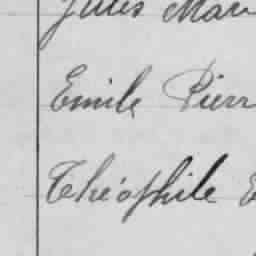 Jules Mari
Emile Pierr
Théophile E